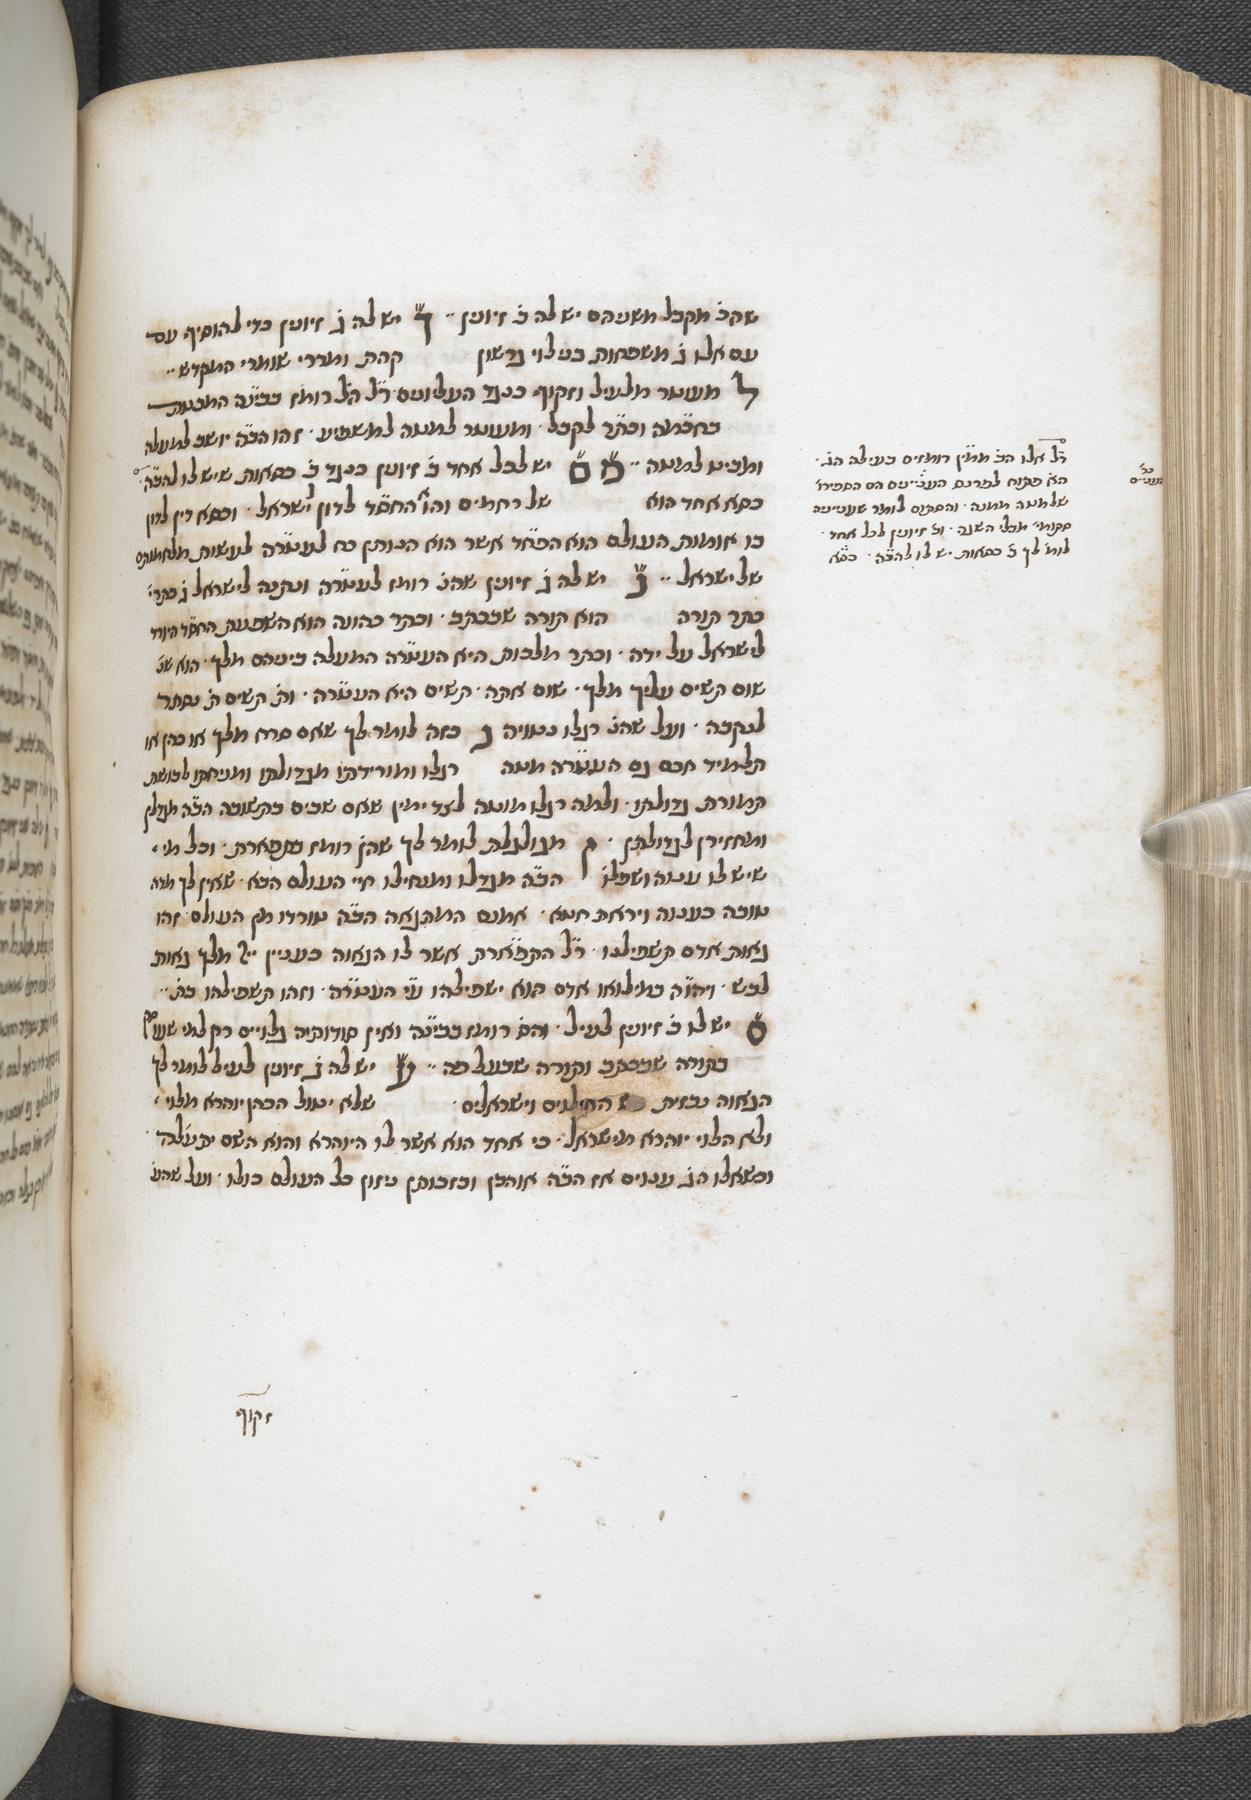 שהכ׳ מקבל משניהם יש לה כ׳ זיונין ״ ך יש לה ג׳ זיונין כדי להוסיף עם
עם אלו ג׳ משפחות בני לוי גרשון קהת ומררי שומרי המקדש ״
ל מעומד מלעיל וזקוף כנגד העליונים ר״ל הל׳ רומז בבינה המכוונת
בחכמה וכתר לקבל · ומעומד למטה להשפיע · זהו הב״ה יושב למעלה
ומביט למטה ״ ם ם יש לכל אחד כ׳ זיונין כנגד כ׳ כסאות שיש לו להב״ה ·
כסא אחד הוא של רחמים והוא החסד לדון לישראל · וכסא דין לדון
בו אומות העולם הוא הפחד אשר הוא הנותן כח לעטרה לעשות מלחמותם
של ישראל ״ נ יש לה ג׳ זיונין שהנ׳ רומז לעטרה ונתנה לישראל ג׳ כתרי׳
כתר תורה הוא תורה שבכתב · וכתר כהונה הוא השפעת החסד היורד
לישראל על ידה · וכתר מלכות היא העטרה המעלה ביניהם מלך · הוא שנ׳
שום תשים עליך מלך · שום אתה · תשים היא העטרה · ות׳ תשים ת׳ נסתר
לנקבה · ועל שהנ׳ רגלו נטויה נ כזה לומר לך שאם סרח מלך או כהן או
תלמיד חכם גם העטרה מטה רגלו ומורידתו מגדולתו ומניחתו לבושת
תמורת גדולתו · ולמה רגלו מוטה לצד ימין שאם שבים בתשובה הב״ה מגדלן
ומחזירן לגדולתן · ן מגולגלת לומר לך שהן׳ רומז בתפארת · וכל מי ·
שיש לו ענוה ושפלו׳ הב״ה מגדלו ומנחילו חיי העולם הבא · שאין לך מדה
טובה כענוה ויראת חטא · אמנם המתגאה הב״ה טורדו מן העולם · זהו
גאות אדם תשפילנו · ר״ל התפארת אשר לו הגאוה כענין י״י מלך גאות
לבש · ויהיה במילואו אדם הוא ישפילהו ע״י העטרה · וזהו תשפילהו בת׳ ״
ס יש לו כ׳ זיונין לעיל · והם רומז בבינה ואין סודותיה גלויים רק למי שעו׳
בתורה שבכתב ותורה שבעל פה ״ ע יש לה ג׳ זיונין לעיל לומר לך
הגאוה נבזית וישראלים · שלא יטול הכהן יוהרא מלוי ·
ולא הלוי יוהרא מישראל · כי אחד הוא אשר לו היוהרא והוא השם יתעלה ·
וכשאלו הג׳ ענוים אז הב״ה אוהבן ובזכותן ניזון כל העולם כולו · ועל שהע׳
זקוף
ר״ל אלו הכ׳ ממין רומזים בעילה הנ׳ ·
הא׳ פתוח לפרנס העניים הם הספירו׳
שלמטה ממנה · והסתום לומר שעניינה
סתומי׳ מכלי השגה · וכ׳ זיונין לכל אחד ·
לומ׳ לך כ׳ כסאות יש לו להב״ה · כסא